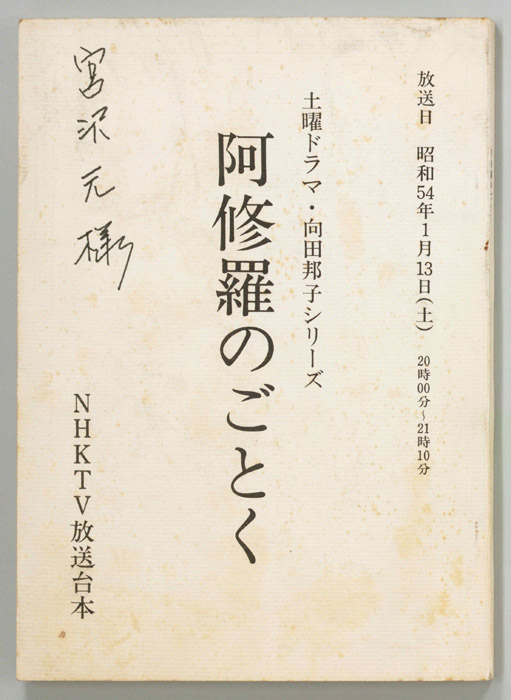 放送日 昭和54年1月13日(土) 20時00分~21時10分
土曜ドラマ・向田邦子シリーズ
阿修羅のごとく
NHKTV放送台本
宮沢元様